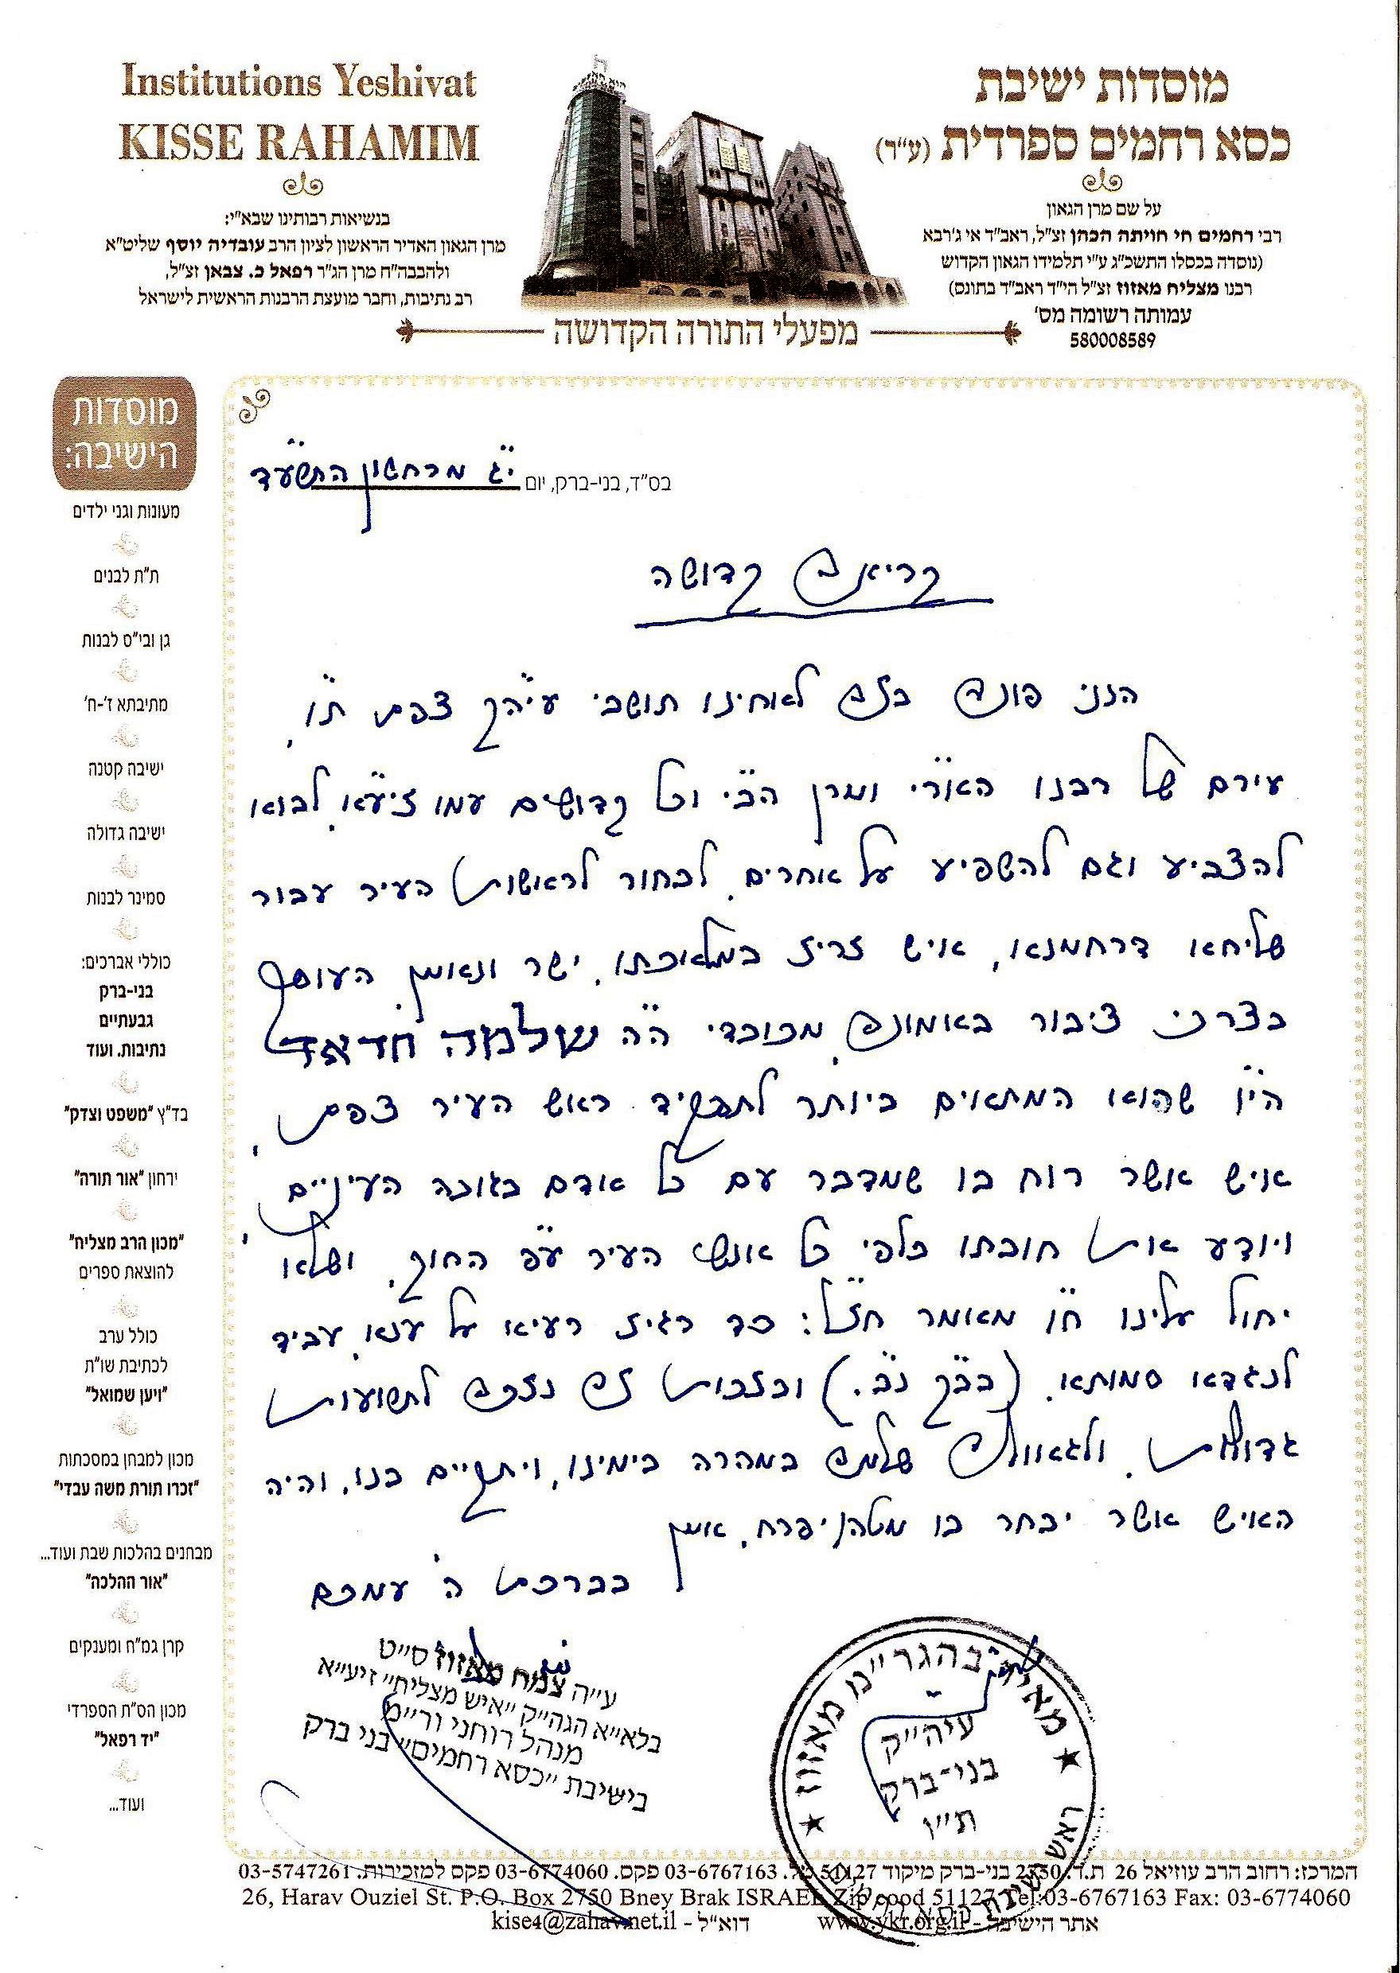 Institutions Yeshivat
KISSE RAHAMIM
בנשיאות רבותינו שבא"י:
מרן הגאון האדיר הראשון לציון הרב עובדיה יוסף שליט"א
ולהבבה"ח מרן הג"ר רפאל כ. צבאן זצ"ל,
רב נתיבות, וחבר מועצת הרבנות הראשית לישראל
מוסדות ישיבת
כסא רחמים ספרדית (ע"ר)
על שם מרן הגאון
רבי רחמים חי חויתה הכהן זצ"ל, ראב"ד אי ג'רבא
(נוסדה בכסלו התשכ"ג ע"י תלמידו הגאון הקדוש
רבנו מצליח מאזוז זצ"ל הי"ד ראב"ד בתונס)
עמותה רשומה מס'
580008589
מפעלי התורה הקדושה
מוסדות
הישיבה:
מעונות וגני ילדים
ת"ת לבנים
גן ובי"ס לבנות
מתיבתא ז'-ח'
ישיבה קטנה
ישיבה גדולה
סמינר לבנות
כוללי אברכים:
בני-ברק
גבעתיים
נתיבות. ועוד
בד"ץ "משפט וצדק"
ירחון "אור תורה"
"מכון הרב מצליח"
להוצאת ספרים
כולל ערב
לכתיבת שו"ת
"ויען שמואל"
מכון למבחן במסכתות
"זכרו תורת משה עבדי"
מבחנים בהלכות שבת ועוד...
"אור ההלכה"
קרן גמ"ח ומענקים
מכון הס"ת הספרדי
"יד רפאל"
ועוד...
בס"ד, בני-ברק, יום י"ג מרחשון התשע"ד
קריאה קדושה
הנני פונה בזה לאחינו תושבי עיה"ק צפת ת"ו,
עירם של רבנו האר"י ומרן הב"י וכל קדושים עמו זיע"א, לבוא
להצביע וגם להשפיע על אחרים, לבחור לראשות העיר עבור
שליחא דרחמנא, איש זריז במלאכתו, ישר ונאמן, העוסק
בצרכי ציבור באמונה, מכובדי ה"ה שלמה חדאד
הי"ו שהוא המתאים ביותר לתפקיד ראש העיר צפת,
איש אשר רוח בו שמדבר עם כל אדם בגובה העיניים,
ויודע את חובתו כלפי כל אנשי העיר ע"פ החוק, ושלא
יחול עלינו ח"ו מאמר חז"ל: כד רגיז רעיא על ענא, עביד
לנגדא סמותא. (ב"ק נ"ב.) ובזכות זה נזכה לתשועות
גדולות, ולגאולה שלמה במהרה בימינו, ויתקיים בנו, והיה
האיש אשר יבחר בו מטהו יפרח, אמן
בברכת ה' עמכם
ע"ה צמח מאזוז ס"ט
בלא"א הגה"ק "איש מצליח" זיע"א
מנהל רוחני ור"מ
בישיבת "כסא רחמים" בני ברק
מאיר בהגר"מ מאזוז
עיה"ק
בני-ברק
ת"ו
ראש ישיבת כסא רחמים
המרכז: רחוב הרב עוזיאל 26 ת.ד. 2350 בני-ברק מיקוד 51127 טל. 03-6767163 פקס. 03-6774060 פקס למזכירות. 03-5747261
26, Harav Ouziel St. P.O. Box 2750 Bney Brak ISRAEL Zip cood 51127 Tel:03-6767163 Fax: 03-6774060
אתר הישיבה - www.ykr.org.il דוא"ל - kise4@zahav.net.il